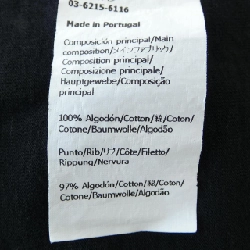 03-6215-6116
Made in Portugal
Composición principal/Main
composition/メインファブリック/
Composition principal/
Composizione principale/
Hauptgewebe/Composição
principal/
100% Algodón/Cotton/綿/Coton/
Cotone/Baumwolle/Algodão
Punto/Rib/リブ/Côte/Filetto/
Rippung/Nervura
97% Algodón/Cotton/綿/Coton/
Cotone/Baumwolle/Algodão